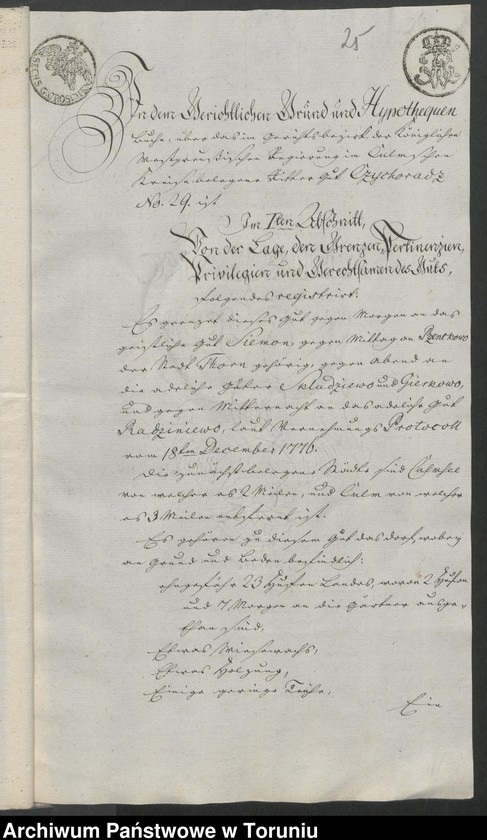 25
SECHS G. GROSCHEN
In dem Gerichtlichen Grund und Hypothequen
Buche, über das im Gerichtsbezirk der Königlichen
Westpreußischen Regierung im Culmschen
Kreise belegene Ritter Gut Czychoradz
No. 29. ist
Im Iten Abschnitt,
Von der Lage, den Grenzen, Pertinenzien,
Privilegien und Gerechtsamen des Guts,
folgendes registrirt:
Es grenzet dieses Gut gegen Morgen an das
geistliche Gut Siemon, gegen Mittag an Rzentkowo
der Stadt Thorn gehörig, gegen Abend an
die adeliche Güter Skludziewo und Gierkowo,
und gegen Mitternacht an das adeliche Gut
Radzińiewo, laut Vernehmungs Protocoll
vom 18ten December 1776.
Die zunächst belegene Städte sind Culmsee
von welcher es 2 Meilen, und Culm von welcher
es 3 Meilen entfernt ist.
Es gehören zu diesem Gut das Dorf, wobey
an Grund und Boden befindlich:
ohngefähr 23 Hufen Landes, wovon 2 Hufen
und 7 Morgen an die Gärtner ausge-
than sind,
Etwas Wiesewachs,
Etwas Holzung,
Einige geringe Teiche,
Ein
Archiwum Państwowe w Toruniu